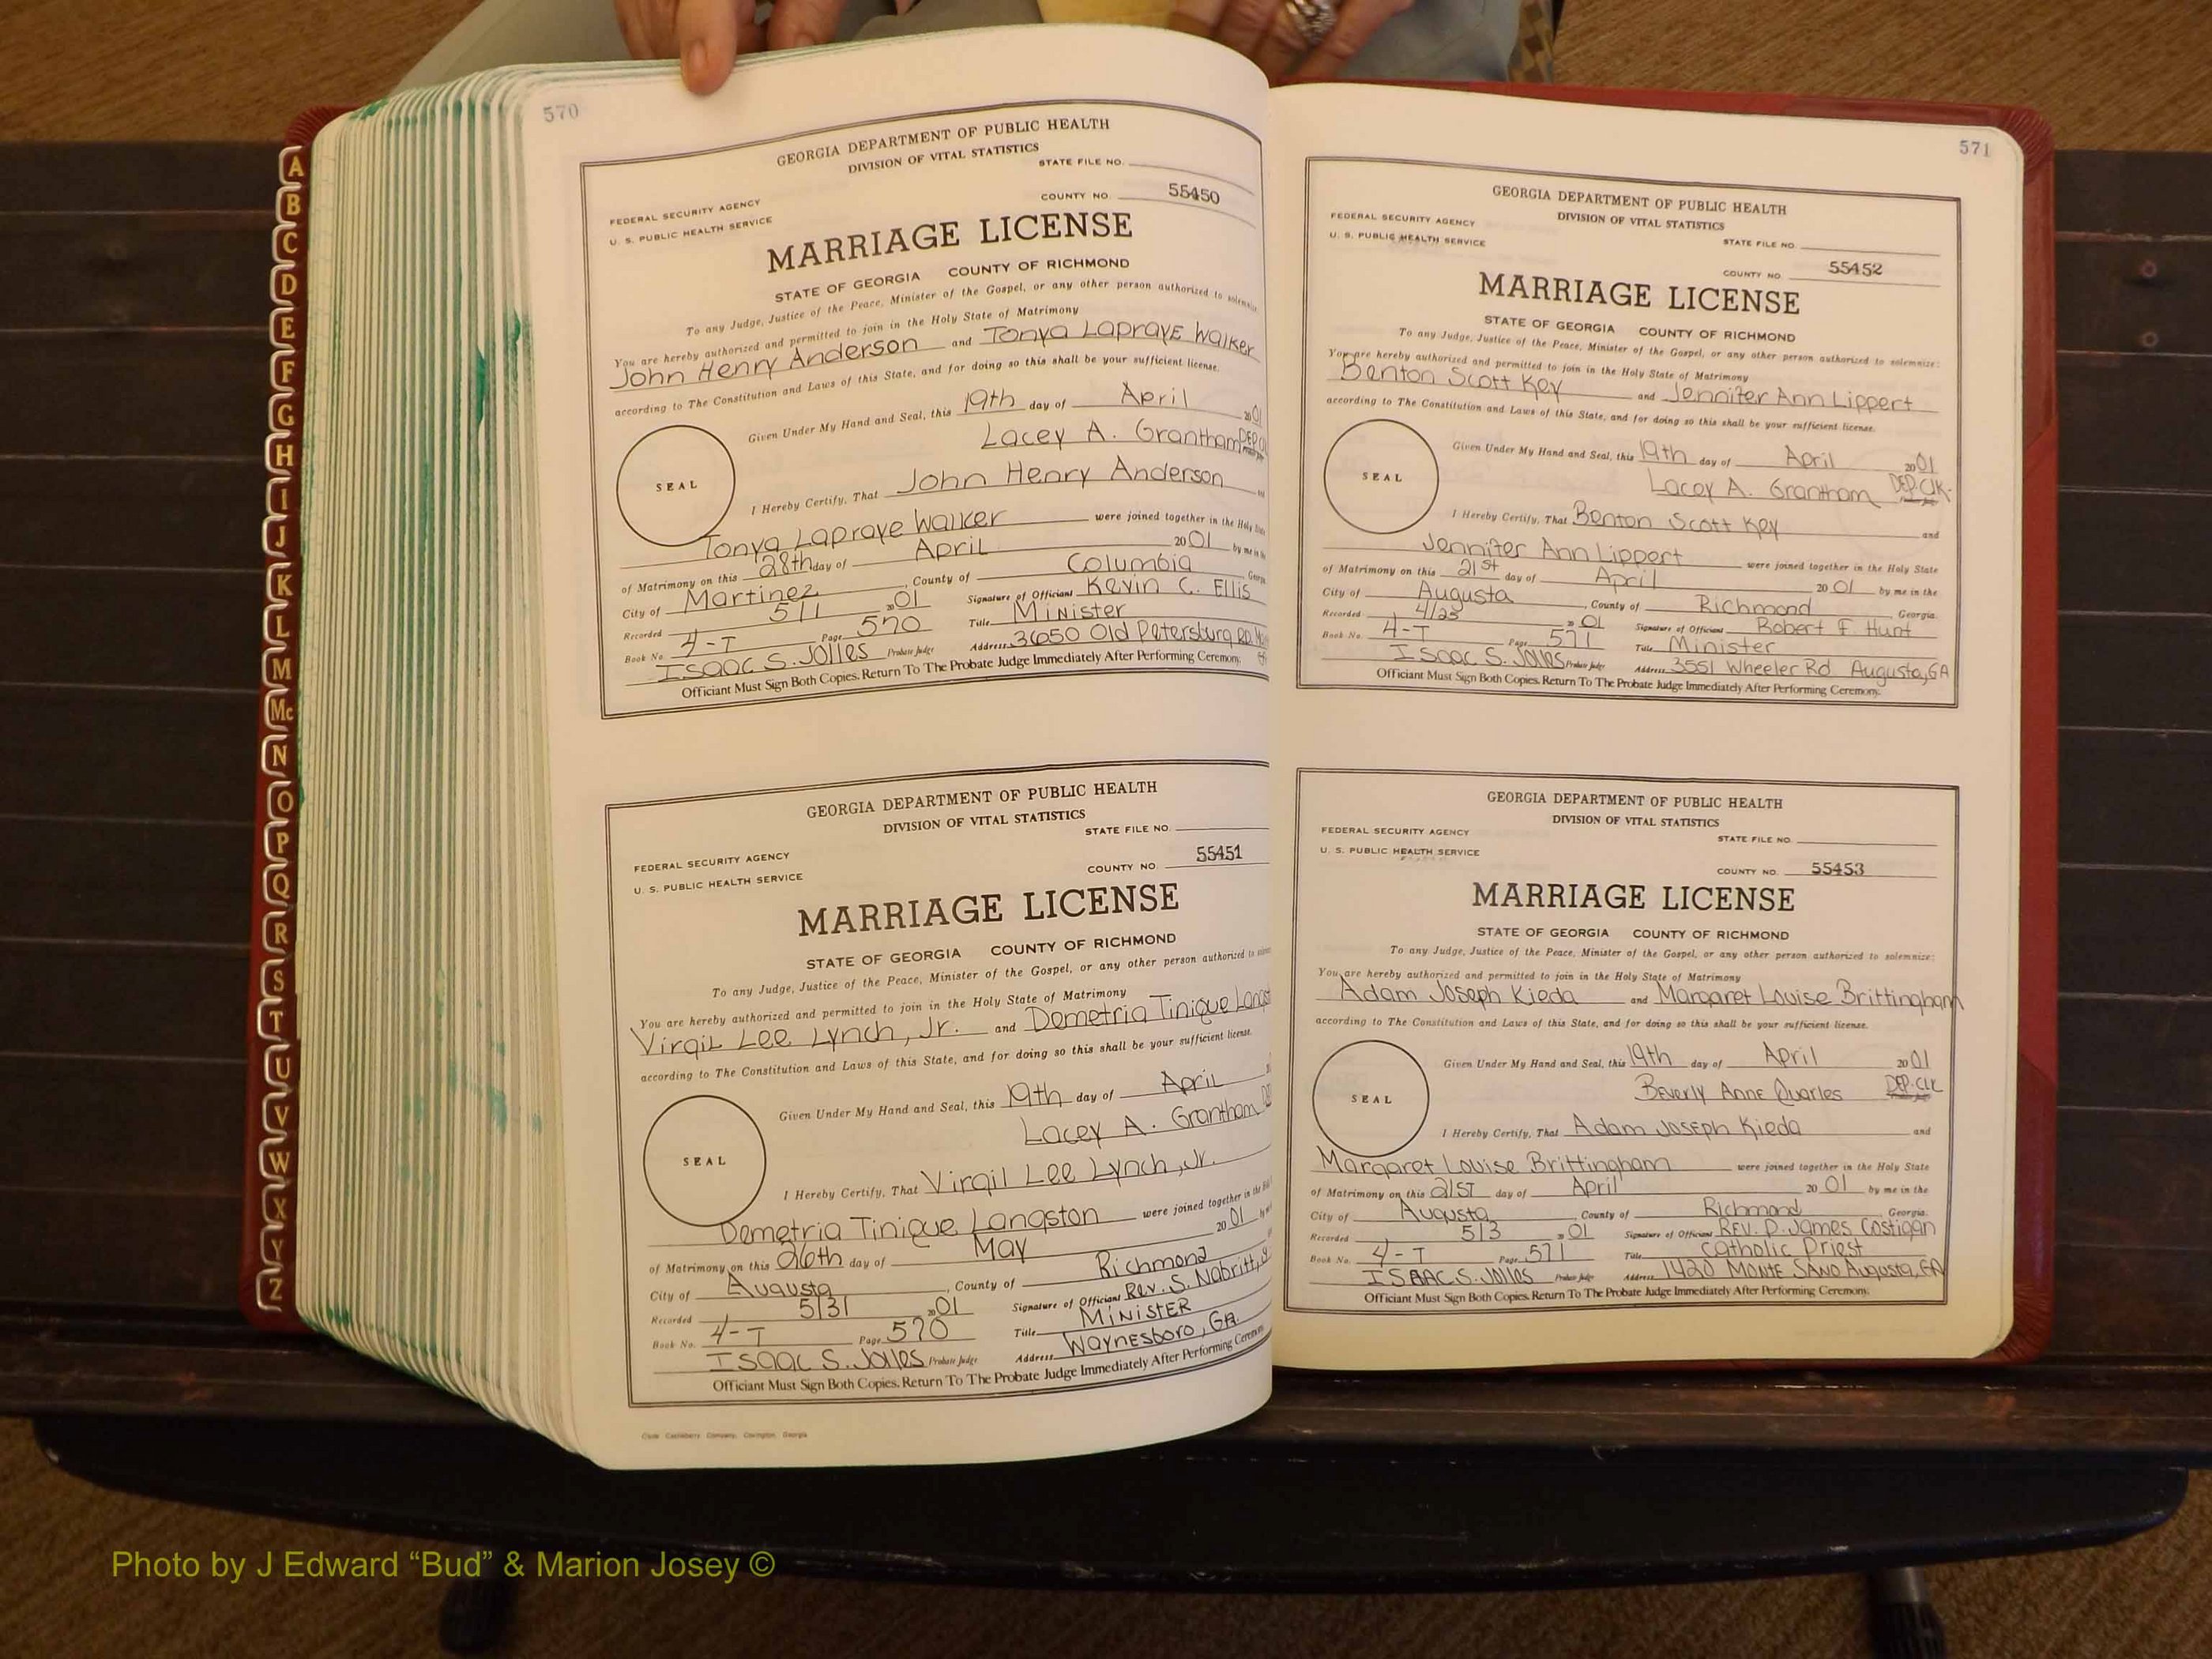 A
B
C
D
E
F
G
H
I
J
K
L
M
Mc
N
O
P
Q
R
S
T
U
V
W
X
Y
Z
570
GEORGIA DEPARTMENT OF PUBLIC HEALTH
DIVISION OF VITAL STATISTICS
STATE FILE NO.
FEDERAL SECURITY AGENCY
COUNTY NO. 55450
U. S. PUBLIC HEALTH SERVICE
MARRIAGE LICENSE
STATE OF GEORGIA COUNTY OF RICHMOND
To any Judge, Justice of the Peace, Minister of the Gospel, or any other person authorized to solemnize
You are hereby authorized and permitted to join in the Holy State of Matrimony
John Henry Anderson and Tonya Lapraye Walker
according to The Constitution and Laws of this State, and for doing so this shall be your sufficient license.
Given Under My Hand and Seal, this 19th day of April 2001
Lacey A. Grantham
SEAL
I Hereby Certify, That John Henry Anderson and
Tonya Lapraye Walker were joined together in the Holy State
of Matrimony on this 28th day of April 2001 by me in the
City of Martinez, County of Columbia
Recorded 5/1 2001 Signature of Official Kevin C. Ellis
Book No. 4-T Page 570 Title Minister
Isaac S. Jolles Probate Judge Address 3650 Old Petersburg RD.
Officiant Must Sign Both Copies. Return To The Probate Judge Immediately After Performing Ceremony.
GEORGIA DEPARTMENT OF PUBLIC HEALTH
DIVISION OF VITAL STATISTICS
STATE FILE NO.
FEDERAL SECURITY AGENCY
COUNTY NO. 55451
U. S. PUBLIC HEALTH SERVICE
MARRIAGE LICENSE
STATE OF GEORGIA COUNTY OF RICHMOND
To any Judge, Justice of the Peace, Minister of the Gospel, or any other person authorized to
You are hereby authorized and permitted to join in the Holy State of Matrimony
Virgil Lee Lynch, Jr. and Demetria Tinique
according to The Constitution and Laws of this State, and for doing so this shall be your sufficient license.
Given Under My Hand and Seal, this 19th day of April
Lacey A. Grantham
SEAL
I Hereby Certify, That Virgil Lee Lynch, Jr.
Demetria Tinique Langston were joined together in the
of Matrimony on this 26th day of May 2001
City of Augusta, County of Richmond
Recorded 5/31 2001 Signature of Official Rev. S. Nabritt,
Book No. 4-T Page 570 Title Minister
Isaac S. Jolles Probate Judge Address Waynesboro, GA.
Officiant Must Sign Both Copies. Return To The Probate Judge Immediately After Performing Ceremony.
Clyde Castleberry Company, Covington, Georgia
571
GEORGIA DEPARTMENT OF PUBLIC HEALTH
DIVISION OF VITAL STATISTICS
FEDERAL SECURITY AGENCY
STATE FILE NO.
U. S. PUBLIC HEALTH SERVICE
COUNTY NO. 55452
MARRIAGE LICENSE
STATE OF GEORGIA COUNTY OF RICHMOND
To any Judge, Justice of the Peace, Minister of the Gospel, or any other person authorized to solemnize:
You are hereby authorized and permitted to join in the Holy State of Matrimony
Benton Scott Key and Jennifer Ann Lippert
according to The Constitution and Laws of this State, and for doing so this shall be your sufficient license.
Given Under My Hand and Seal, this 19th day of April 2001
Lacey A. Grantham DEP. Clk.
SEAL
I Hereby Certify, That Benton Scott Key and
Jennifer Ann Lippert were joined together in the Holy State
of Matrimony on this 21st day of April 2001 by me in the
City of Augusta, County of Richmond Georgia.
Recorded 4/23 2001 Signature of Official Robert F. Hunt
Book No. 4-T Page 571 Title Minister
Isaac S. Jolles Probate Judge Address 3551 Wheeler Rd Augusta, GA
Officiant Must Sign Both Copies. Return To The Probate Judge Immediately After Performing Ceremony.
GEORGIA DEPARTMENT OF PUBLIC HEALTH
DIVISION OF VITAL STATISTICS
FEDERAL SECURITY AGENCY
STATE FILE NO.
U. S. PUBLIC HEALTH SERVICE
COUNTY NO. 55453
MARRIAGE LICENSE
STATE OF GEORGIA COUNTY OF RICHMOND
To any Judge, Justice of the Peace, Minister of the Gospel, or any other person authorized to solemnize:
You are hereby authorized and permitted to join in the Holy State of Matrimony
Adam Joseph Kieda and Margaret Louise Brittingham
according to The Constitution and Laws of this State, and for doing so this shall be your sufficient license.
Given Under My Hand and Seal, this 19th day of April 2001
Beverly Anne Quarles DEP. Clk
SEAL
I Hereby Certify, That Adam Joseph Kieda and
Margaret Louise Brittingham were joined together in the Holy State
of Matrimony on this 21st day of April 2001 by me in the
City of Augusta, County of Richmond Georgia.
Recorded 5/3 2001 Signature of Official Rev. D. James Costigan
Book No. 4-T Page 571 Title Catholic Priest
Isaac S. Jolles Probate Judge Address 1420 Monte Sano Augusta, GA
Officiant Must Sign Both Copies. Return To The Probate Judge Immediately After Performing Ceremony.
Photo by J Edward “Bud” & Marion Josey ©